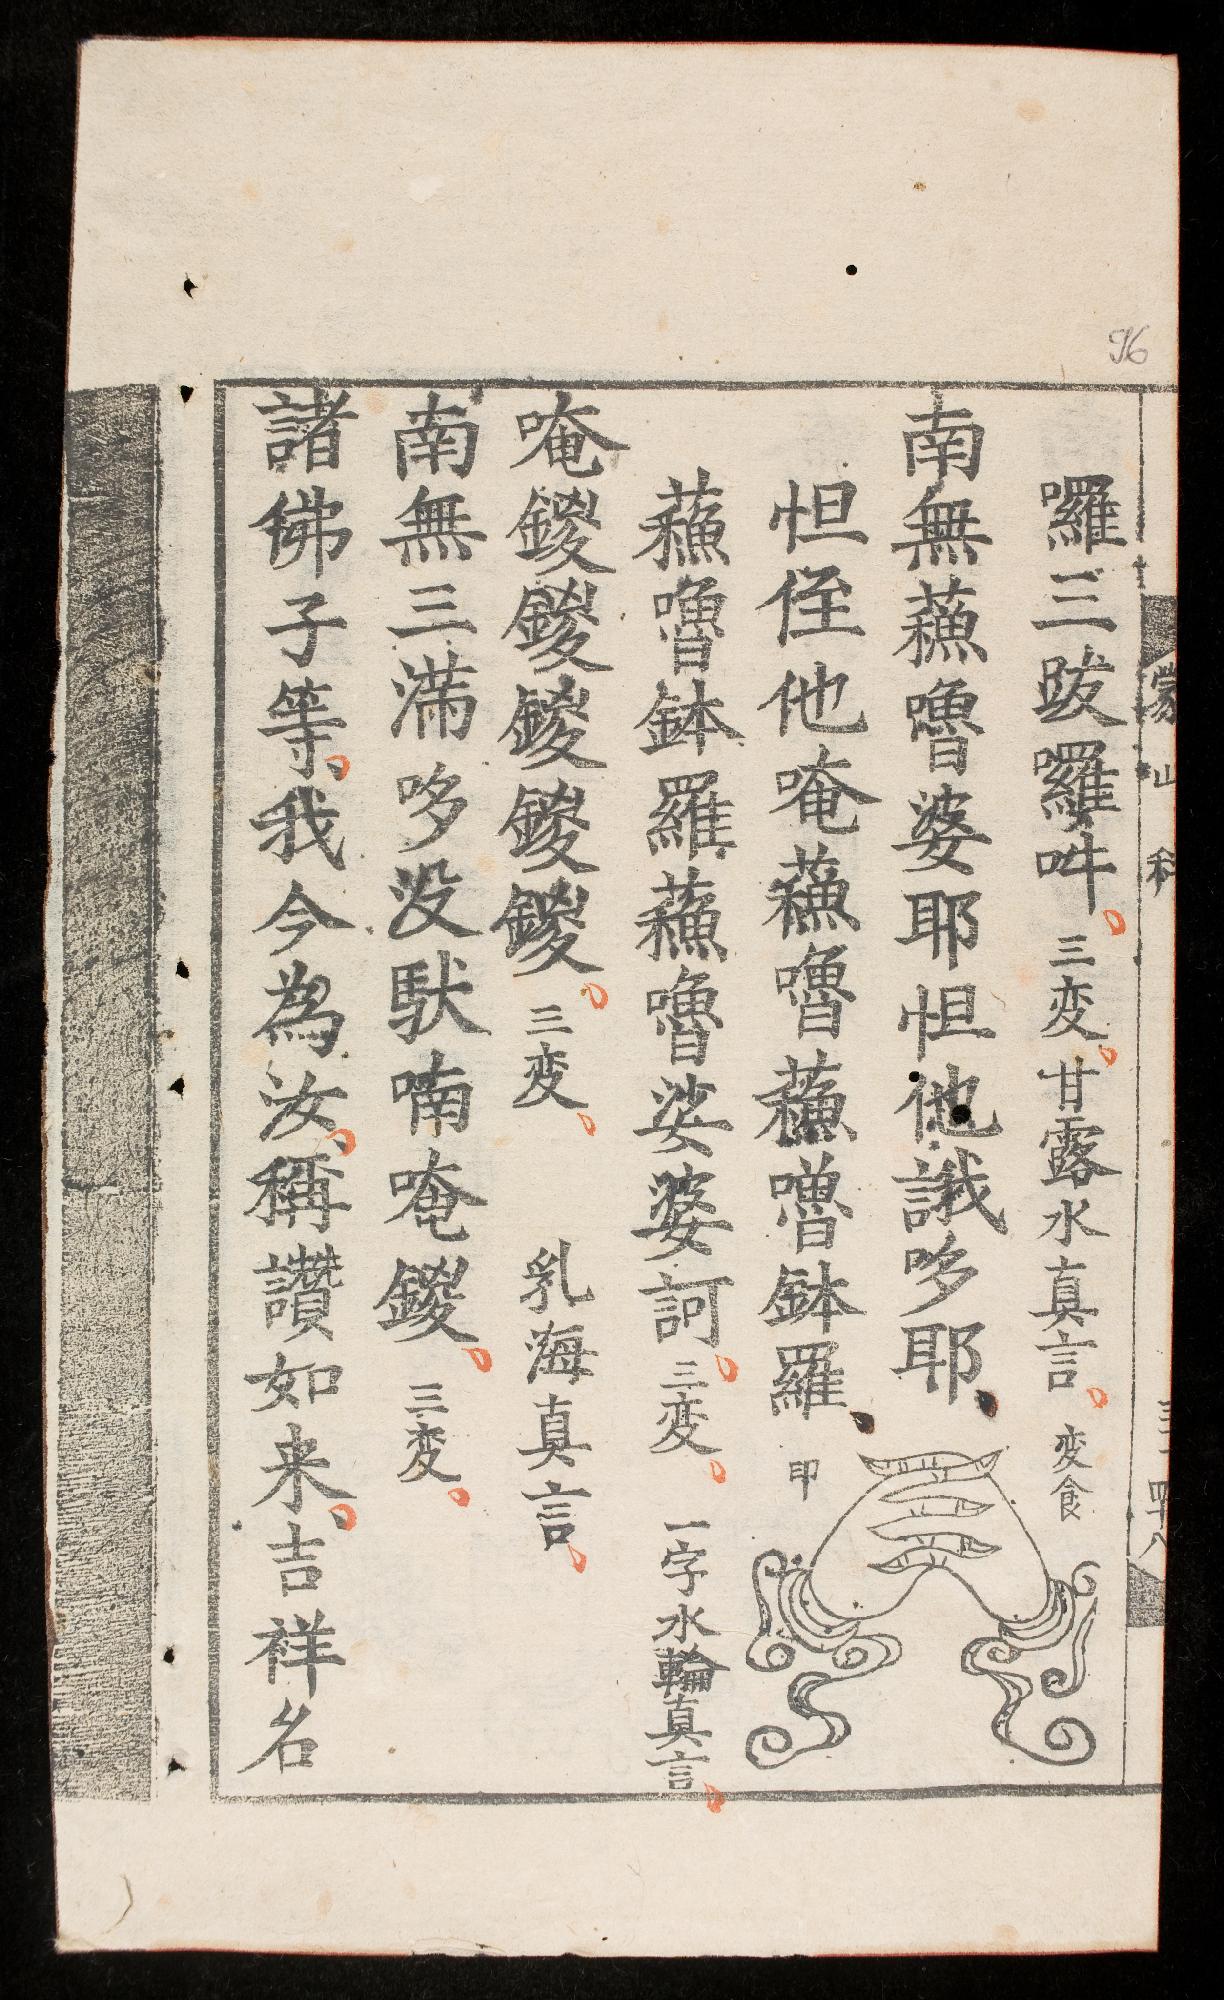 囉三跋囉吽三変甘露水真言変食
南無蘓嚕婆耶怛他誐哆耶
怛侄他唵蘓嚕蘓嚕鉢羅印
蘓嚕鉢羅蘓嚕娑婆訶三変一字水輪真言
唵鑁鑁鑁鑁鑁三変乳海真言
南無三滿哆没馱喃唵鑁三変
諸佛子等我今為汝稱讃如来吉祥名
蒙山科
96